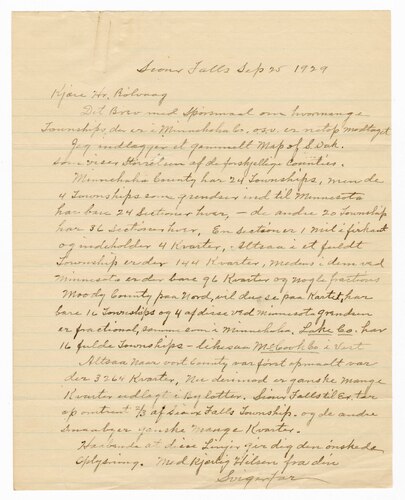 Sioux Falls Sep 25 1929
Kjære Hr. Rölvaag
Dit Brev med Spörsmaal om hvormange
Townships der er i Minnehaha Co. osv. er netop modtaget
Jeg indlagger et gammelt Map of S. Dak.
som viser Störelsen af de forskjellige Counties.
Minnehaha County har 24 Townships, men de
4 Townships som grendser ind til Minnesota
har bare 24 Sectioner hver, – de andre 20 Township
har 36 Sectioner hver, En section er 1 Mil i firkant
og indeholder 4 Kvarter, – Altsaa i et fuldt
Township er der 144 Kvarter, medens i dem ved
Minnesota er der bare 96 Kvarter og nogle fractions
Moody County paa Nord, vil du se paa Kartet, har
bare 16 Townships og 4 af disse ved Minnesota grendsen
er fractional, samme som i Minnehaha, Lake Co. har
16 fulde Townships – likesaa McCook Co i Vest
Altsaa Naar vort County var först opmaalt var
der 3264 Kvarter, Nu derimod er ganske mange
Kvarter udlagt i By lotter. Sioux Falls til Ex. tar
op omtrent 2/3 af Sioux Falls Township. og de andre
smaabyer ganske mange Kvarter.
Haabende at disse Linjer gir dig den önskede
Oplysning. Med Kjærlig Hilsen fra din
Svigerfar